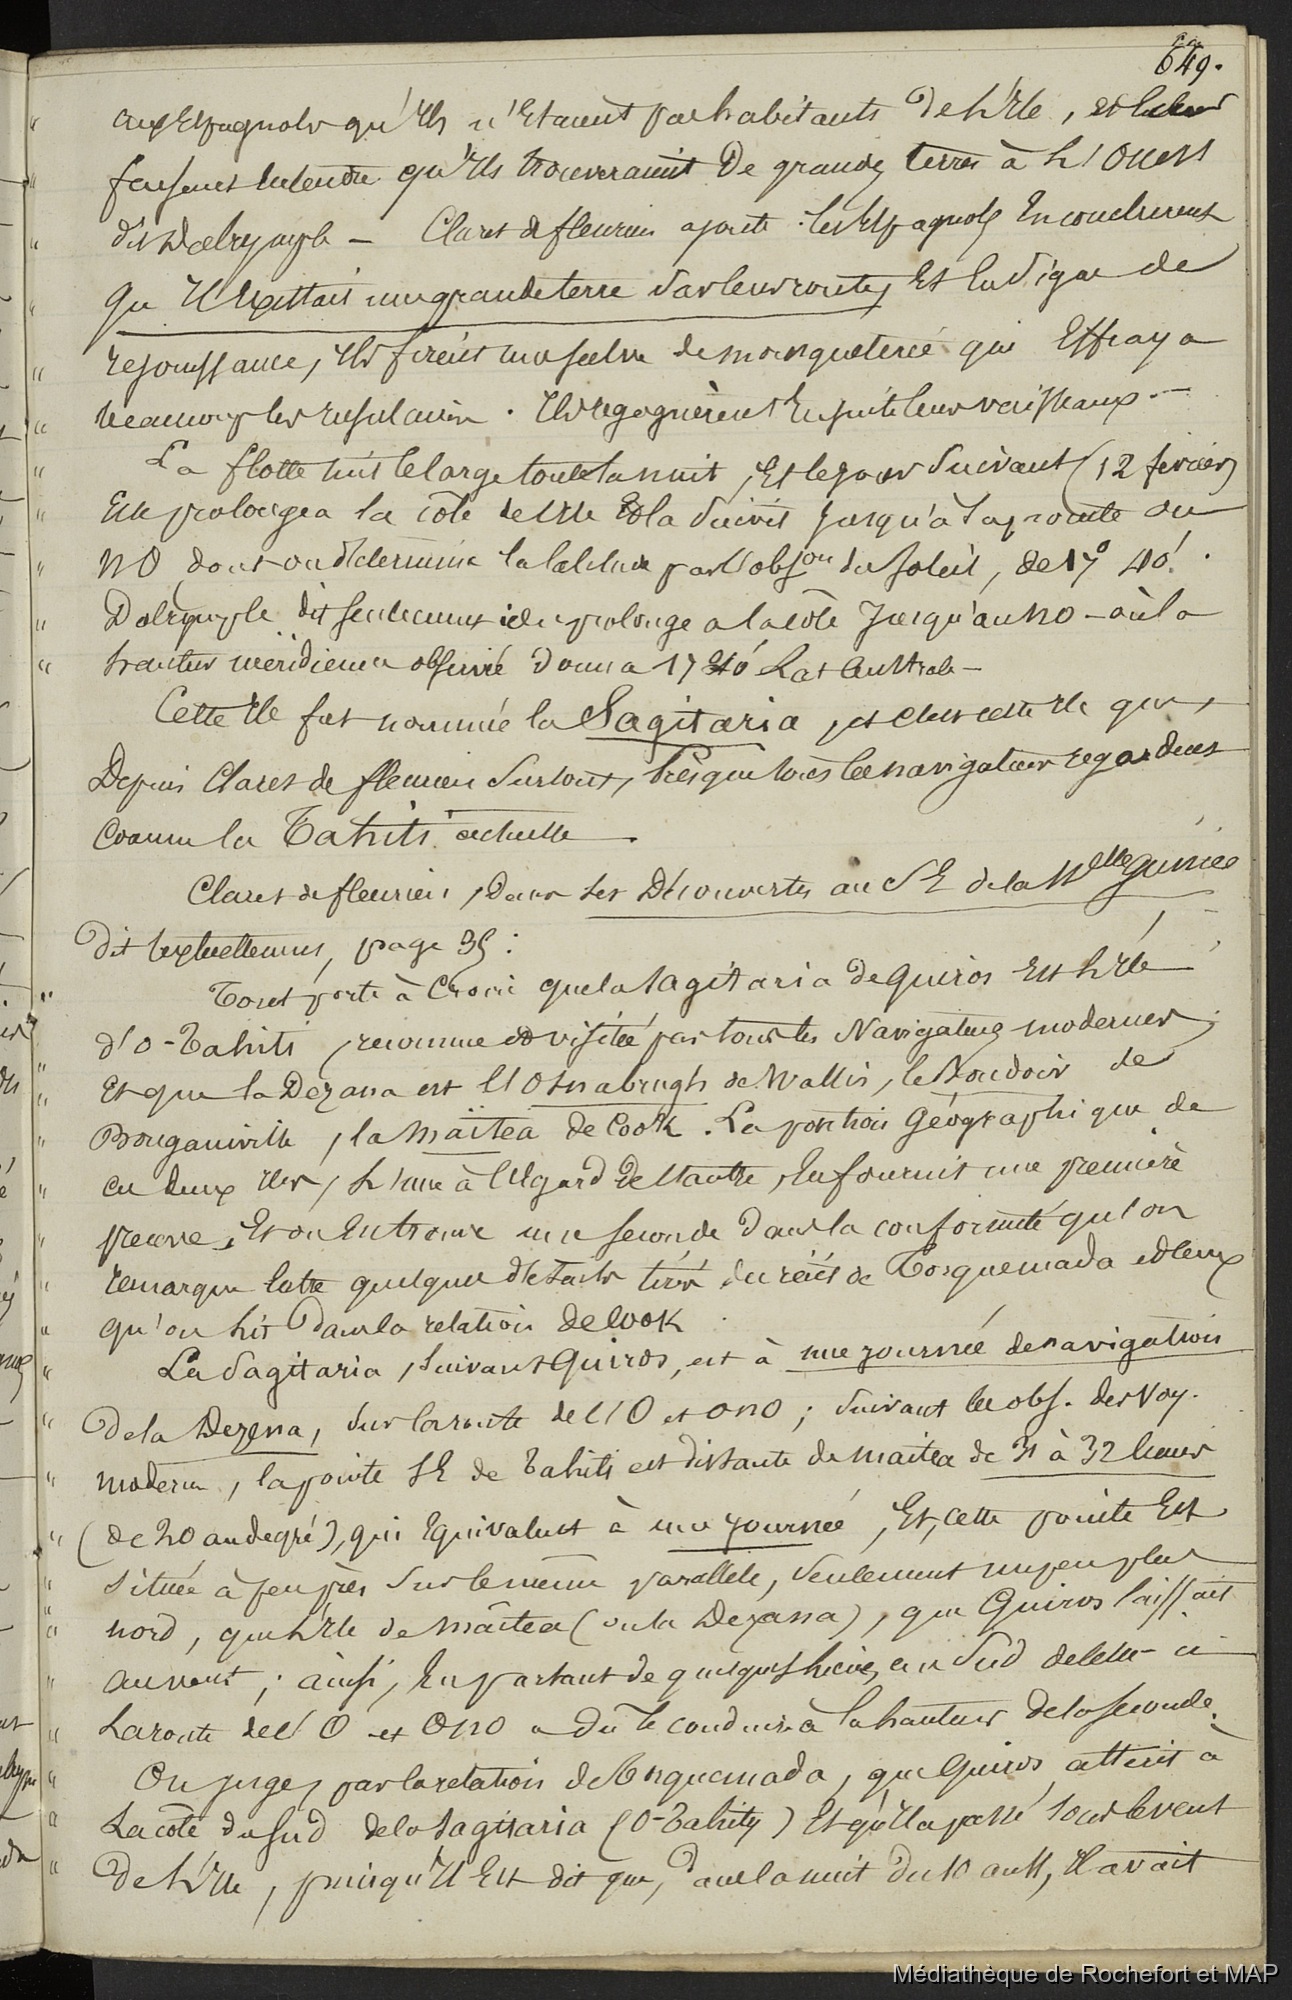 649.
" aux Espagnols qu'Ils n'Etaient pas habitants de L'Ile, et leur
" faisaient entendre qu'Ils trouveraient De grandes terres à L'Ouest
" dit Dalrymple — Claret de fleurieu ajoute les Espagnols En conclurent
" qu'Il Existait une grande terre sur leur route, Et En Signe de
" rejouissance, Ils firent une salve de mousqueterie qui Effraya
" beaucoup les Insulaires. Ils regagnèrent Ensuite leurs vaisseaux. —
" La flotte tint le large toute la nuit, Et le jour Suivant (12 fevrier)
" Elle prolongea la côte de l'Ile Et la Suivit Jusqu'à la pointe du
" NO dont on détermina la latitude par l'obs.on du Soleil, de 17° 40'.
" Dalrymple dit seulement prolongea la côte Jusqu'au NO — où la
" hauteur méridienne observée donna 17 40' Lat Australe —
Cette Ile fut nommée la Sagitaria, et c'est cette Ile que,
Depuis Claret de fleurieu Surtout, Presque tous les navigateurs regardent
Comme la Tahiti actuelle.
Claret de fleurieu, Dans Ses Découvertes au SE de la Nlle Guinée
Dit textuellement, page 35 :
" Tout porte à Croire que la Sagitaria de Quiros Est L'Ile
d'O-Tahiti, reconnue et visitée par tous les Navigateurs modernes ;
" Et que la Dezana est l'Osnabrugh de Wallis, le Boudoir de
" Bougainville, la Maïtea de Cook. La position Géographique de
" ces deux Iles, L'une à l'Egard de l'autre, En fournit une première
" preuve, Et on En trouve une seconde Dans la conformité qu'on
" remarque Entre quelques détails tirés du récit de Torquemada et ceux
" qu'on lit Dans la relation de Cook
" La Sagitaria, suivant Quiros, est à une journée de navigation
" De la Dezena, Sur la route de l'O et ONO ; Suivant les obs. des Voy.
" modernes, la pointe SE de Tahiti est distante de Maitea de 31 à 32 lieues
" (de 20 au degré), qui Equivalent à une journée, Et, cette pointe Est
" située à peu près Sur le même parallèle, Seulement un peu plus
" nord, que L'Ile de Maïtea (ou la Dezana), que Quiros laissait
" au vent ; ainsi, En partant de quelques lieues au Sud de celle-ci
" La route de l'O et ONO a dû le conduire à la hauteur de la seconde.
" On juge, par la relation de Torquemada, que Quiros attérit à
" La côte du Sud de la Sagitaria (O-Tahity) Et qu'Il a passé sous le vent
" De L'Ile, puisqu'Il Est dit que, Dans la nuit du 10 au 11, Il avait
Médiathèque de Rochefort et MAP